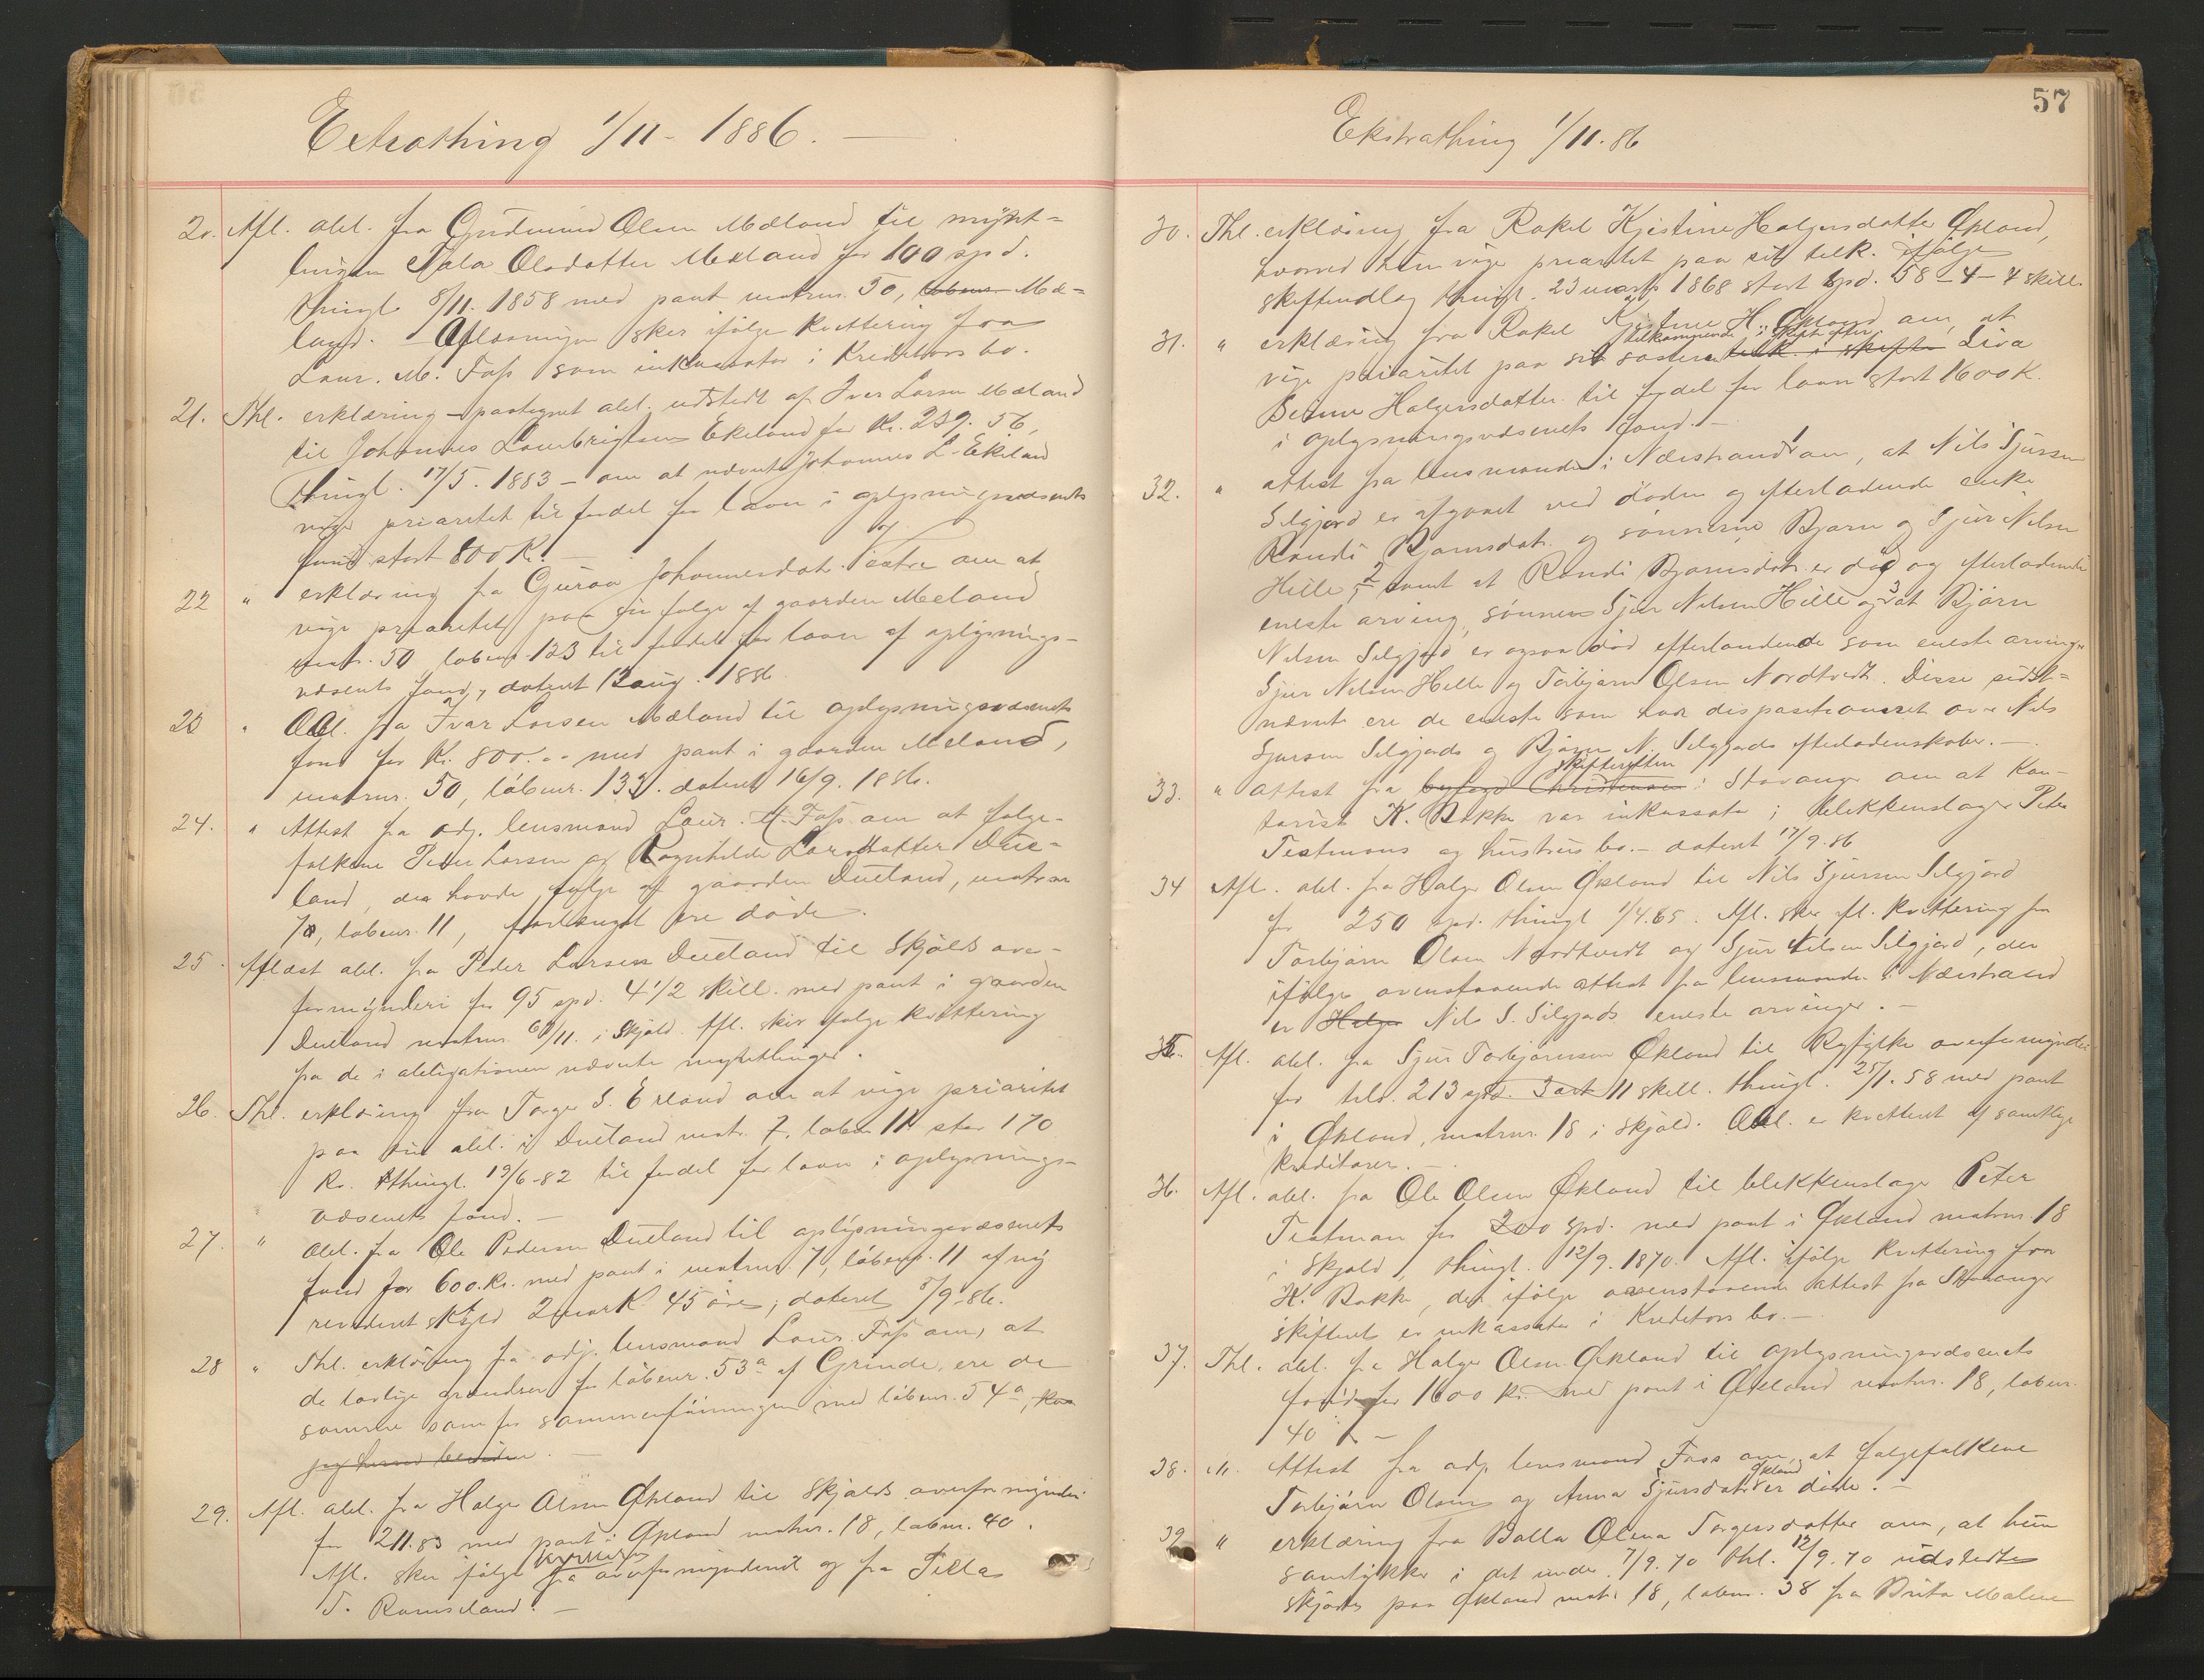 Extrathing 1/11 - 1886.
20. Afl. obl. fra Gudmund Olsen Mæland til mynt-
lingen Olsdatter Mæland for 100 spd.
thingl. 8/11. 1858 med pant matrnr. 50, Mæ-
land. - Aflæsningen sker ifölge kvittering fra
Laur. M. Foss som inkassator i Kreditors bo.
21. Thl. erklæring - paategnet obl. udstedt af Iver Larsen Mæland
til Johannes Ekeland for Kr. 239. 56,
thingl. 17/5. 1883 - om at nævnte Johannes L. Ekeland
viger prioritet til fordel for laan i oplysningsvæsenets
fond stort 800 K. -
22 " erklæring fra Guroa Johannesdatr. om at
vige prioritet paa sin folge af gaarden Meland
matr. 50 löbenr. 123 til fordel for laan af oplysnings-
væsenets fond, dateret 12 aug. 1886
23 " Obl. fra Ivar Larsen Mæland til oplysningsvæsenets
fond for Kr. 800. " med pant i gaarden Meland,
matrnr. 50, löbenr. 133. dateret 16/9. 1886.
24. " Attest fra adj. lensmand Laur. M. Foss om at folge-
folkene Peder Larsen og Ragnhilde Larsdatter Due-
land, der havde folge af gaarden Dueland, matrnr
7a, löbenr. 11, forlængst ere døde.
25. Aflæst obl. fra Peder Larsen Dueland til Skjolds over-
formynderi for 95 spd. 4 1/2 skill. med pant i gaarden
Dueland matrnr. /11. i Skjold. Afl. sker ifolge kvittering
fra de i obligationen nævnte myntlinger.
26. Thl. erklæring fra Torger S. Erland om at vige prioritet
paa sin obl. i Dueland matr. 7. löbenr 11 stor 170
Kr. thingl. 19/6-82 til fordel for laan i oplysnings-
væsenets fond. -
27. " Obl. fra Ole Pedersen Dueland til oplysningsvæsenets
fond for 600. Kr. med pant i matrnr. 7, löbenr. 11 af ny
revideret skyld 2 mark 45 öre; dateret 8/9-86.
28 " Thl. erklæring fra adj. lensmand Laur. Foss om, at
de lovlige grunde for löbenr. 53 a af Grinde, ere de
samme som for sammenföiningen med löbenr. 54 a,
29. Afl. obl. fra Holge Olsen Økland til Skjolds overformynderi
for 211.83 med pant i Økland matrnr. 18, löbenr. 40.
Afl. sker ifölge kvittering fra overformynderiet og fra Tellas
T. Ramsland. -
57
Ekstrathing 1/11.86
30. Thl. erklæring fra Rakel Kjistine Holgersdatter Økland,
hvorved hun viger prioritet paa sit tilk. ifölge
skifteudlæg thingl. 23 marts 1868 stort spd. 58 - 4 - 4 skill.
31. " erklæring fra Rakel Kjistine H. Økland om, at
vige prioritet paa sit söstere tilk. i skifte tilkommende i skifte efter Liva
Serine Holgersdatter til fordel for laan stort 1600 K.
i oplysningsvæsenets fond. -
32. " attest fra lensmanden i Nærstrand om, 1 at Nils Sjursen
Selgjord er afgaaet ved döden og efterladende enke
Randi Bjornsdatr. og sönnerne Bjorn og Sjur Nilsen
Hille, 2 samt at Randi Bjornsdatr. er död og efterladende
eneste arving, sönnen Sjur Nilsen Hille og 3 at Björn
Nilsen Selgjord er ogsaa död efterladende som eneste arvinger
Sjur Nilsen Hille og Torbjørn Olsen Nordtvedt. Disse sidst-
nævnte ere de eneste som har dispositionsret over Nils
Sjursen Selgjords og Björn N. Selgjords efterladenskaber. -
33. " Attest fra byfoged Christensen skifteretten i Stavanger om at Kon-
torist K. Bakke var inkassator i blekkenslager Peter
Testmans og hustrus bo. - dateret 17/9. 86
34 Afl. obl. fra Holge Olsen Økland til Nils Sjursen Selgjord
for 250 spd. thingl 1/4.65. Afl. sker ifl. kvittering fra
Torbjörn Olsen Nordtvedt og Sjur Nilsen Selgjord, der
ifölge ovenstaaende attest fra lensmanden i Nærstrand
er Holge Nils S. Selgjords eneste arvinger. -
35. Afl. obl. fra Sjur Torbjörnsen Økland til Ryfylke overformynderi
for 213 spd. 3 ort 11 skill. thingl. 25/1. 58 med pant
i Økland, matrnr. 18 i Skjold. Obl. er kvitteret af samtlige
kreditorer. -
36. Afl. obl. fra Ole Olsen Økland til blekkenslager Peter
Testman for 200 spd. med pant i Økland matrnr. 18
i Skjold, thingl. 12/9. 1870. Afl. ifölge kvittering fra
K. Bakke, der ifölge ovenstaaende attest fra Stavanger
skifteret er inkassator i Kreditors bo. -
37. Thl. obl. fra Holge Olsen Økland til oplysningsvæsenets
fond for 1600 Kr. med pant i Økland matrnr. 18, löbenr.
40. -
38. " Attest fra adj. lensmand Foss om, at folgefolkene
Torbjörn Olsen og Anna Sjursdatr Økland er döde. -
39. " erklæring fra Balla Olena Torgersdatter om, at hun
samtykker i det under 7/9. 70 thl. 12/9. 70 udstedte
skjöde paa Økland matr. 18, löbenr. 38 fra Brita Malene